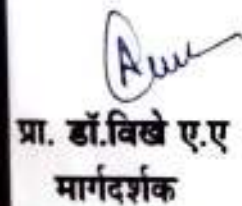 प्रा. डॉ.विखे ए.ए
मार्गदर्शक